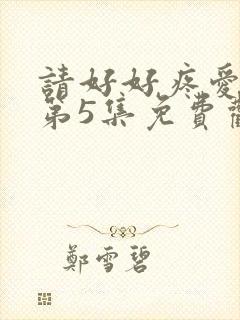 請好好疼愛
第5集免費
鄭雪碧